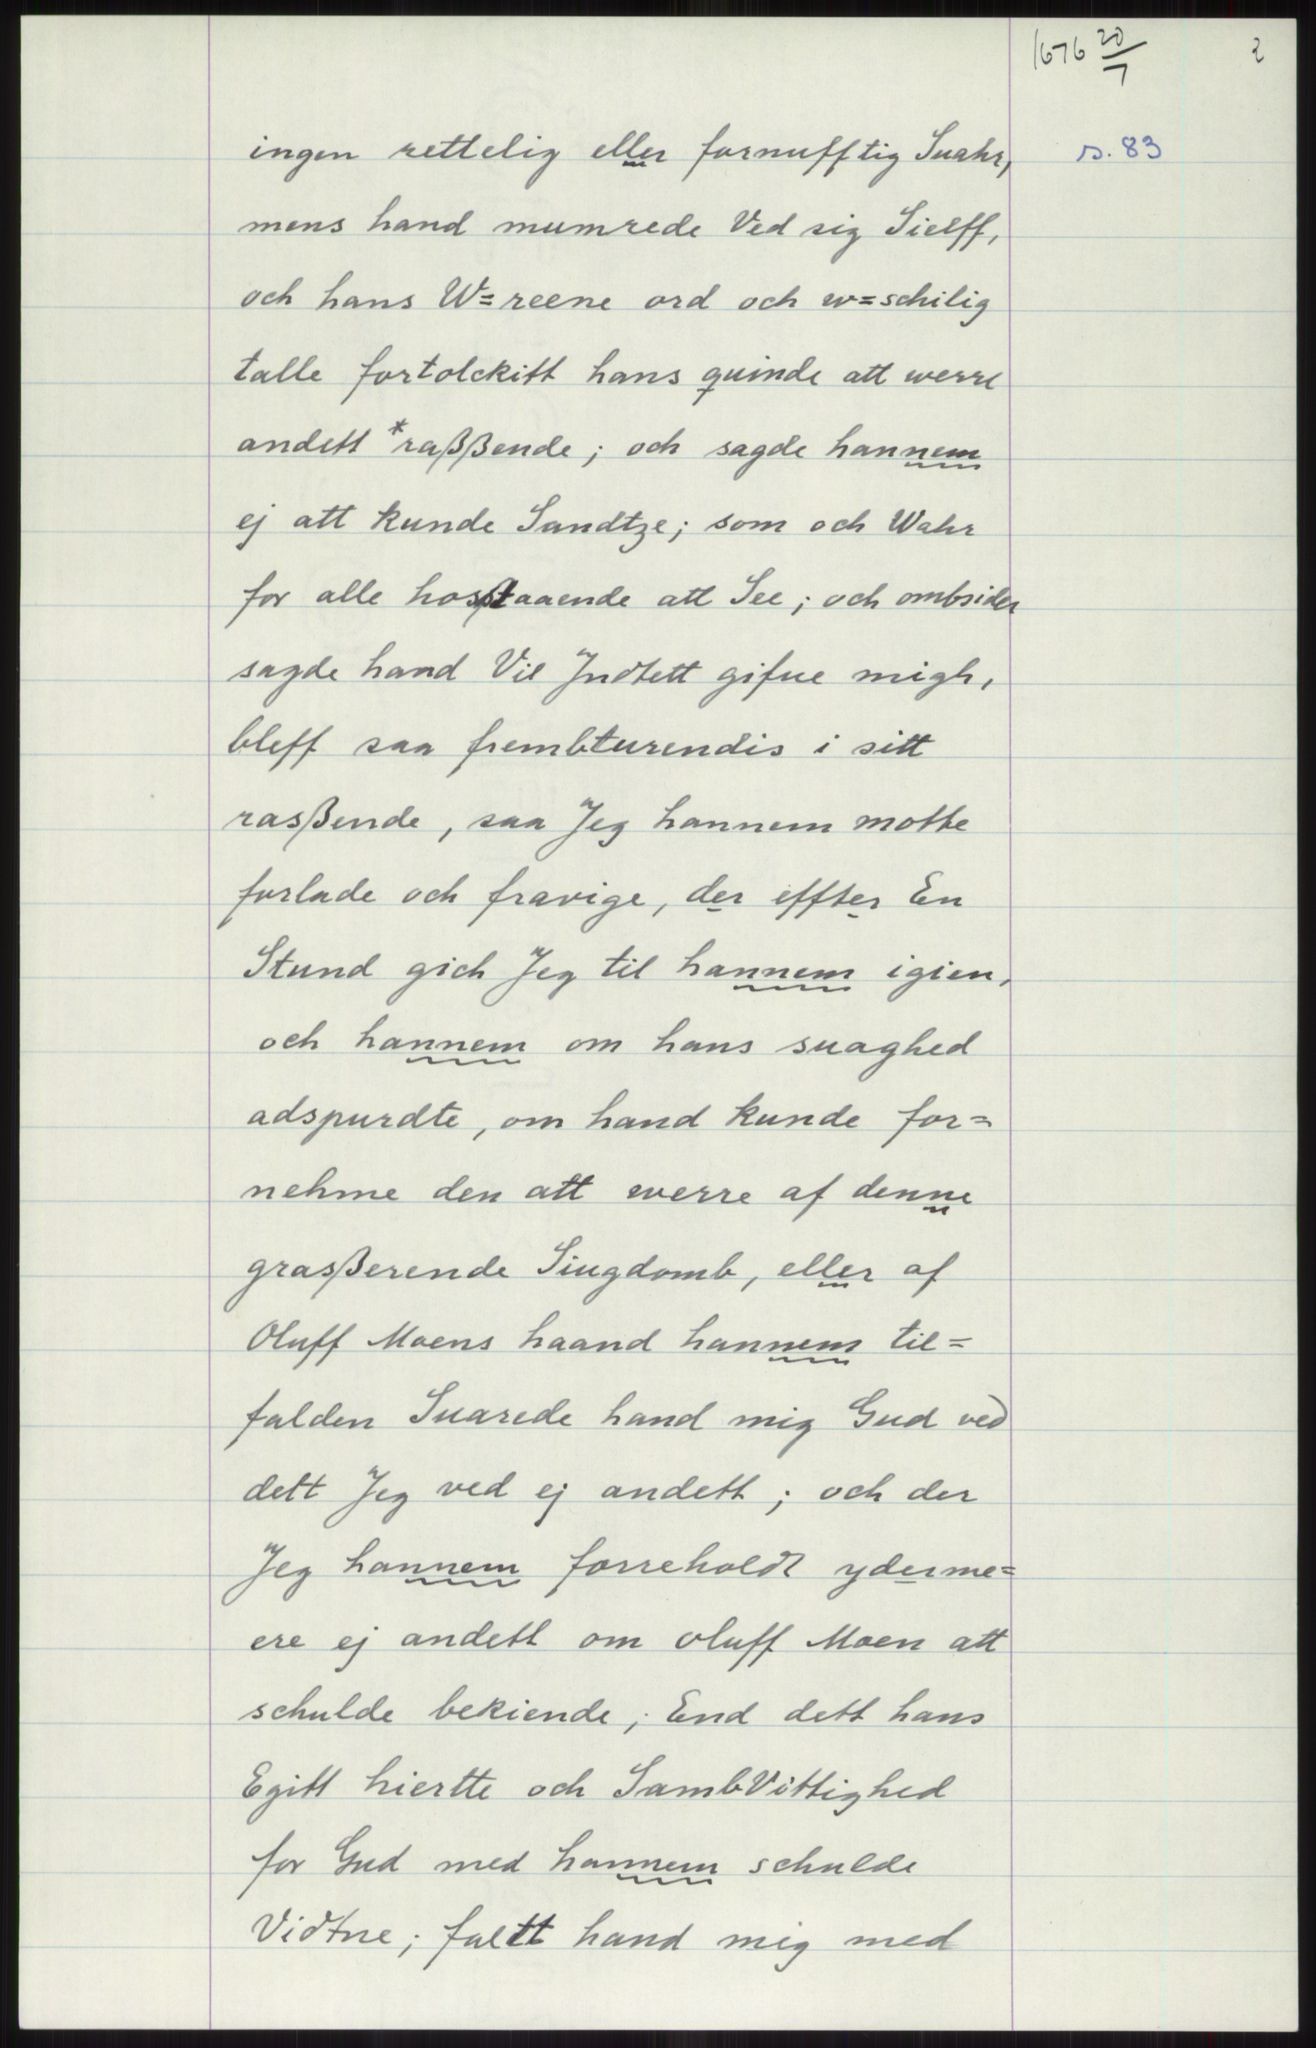 1676 20/7
2
ingen rettelig eller fornufftig Suahr,
s. 83
mens hand mumrede Ved sig Sielff,
och hans W=reene ord och w=schilig
talle fortolckitt hans quinde att werre
andett *raßßende; och sagde hannem
ej att kunde Sandtze; som och Wahr
for alle hosstaaende att See; och ombsider
sagde hand Vil Jndtett gifue migh,
bleff saa frembturendis i sitt
rasßende, saa Jeg hannem motte
forlade och fravige, der effter En
Stund gich Jeg til hannem igien,
och hannem om hans suaghed
adspurdte, om hand kunde for=
nehme den att werre af denne
grasßerende Siugdomb, eller af
Oluff Moens haand hannem til=
falden Suarede hand mig Gud ved
dett Jeg ved ej andett; och der
Jeg hannem forreholdt yderme=
ere ej andett om oluff Moen att
schulde bekiende; End dett hans
Egitt hiertte och SambVittighed
for Gud med hannem schulde
Vidtne; faltt hand mig med